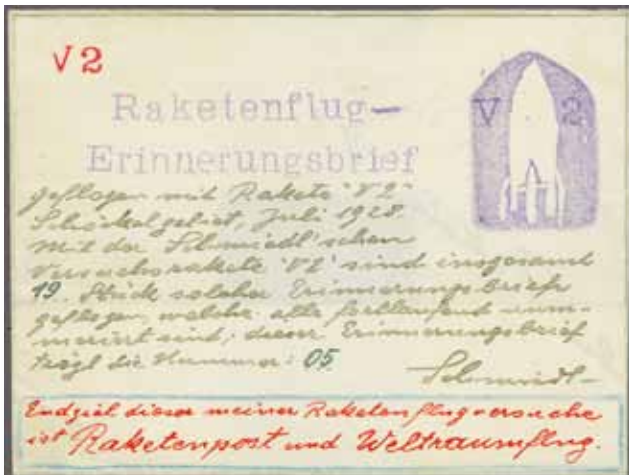 V2
Raketenflug-
V 2
Erinnerungsbrief
geflogen mit Rakete "V2"
Schöckelgebiet, Juli 1928.
Mit der Schmiedl'schen
Versuchsrakete "V2" sind insgesamt
19. Stück solcher Erinnerungsbriefe
geflogen, welche alle fortlaufend num-
meriert sind; dieser Erinnerungsbrief
trägt die Nummer: 05
Schmiedl
Endziel dieser meiner Raketenflugversuche
ist Raketenpost und Weltraumflug.